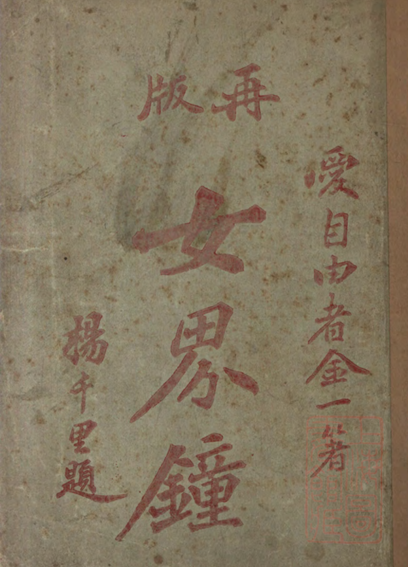 再版
愛自由者金一著
女界鐘
楊千里題